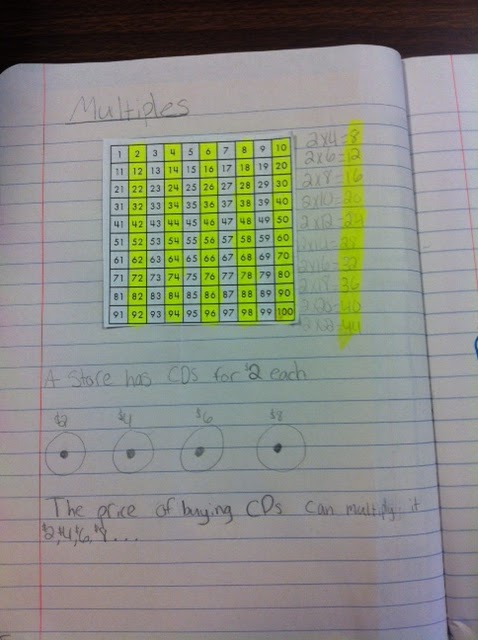 Multiples
1 2 3 4 5 6 7 8 9 10
11 12 13 14 15 16 17 18 19 20
21 22 23 24 25 26 27 28 29 30
31 32 33 34 35 36 37 38 39 40
41 42 43 44 45 46 47 48 49 50
51 52 53 54 55 56 57 58 59 60
61 62 63 64 65 66 67 68 69 70
71 72 73 74 75 76 77 78 79 80
81 82 83 84 85 86 87 88 89 90
91 92 93 94 95 96 97 98 99 100
2x4=8
2x6=12
2x8=16
2x10=20
2x12=24
2x14=28
2x16=32
2x18=36
2x20=40
2x22=44
A Store has CDs for $2 each
$2 $4 $6 $8
The price of buying CDs can multiply: it
$2, $4, $6, $8...